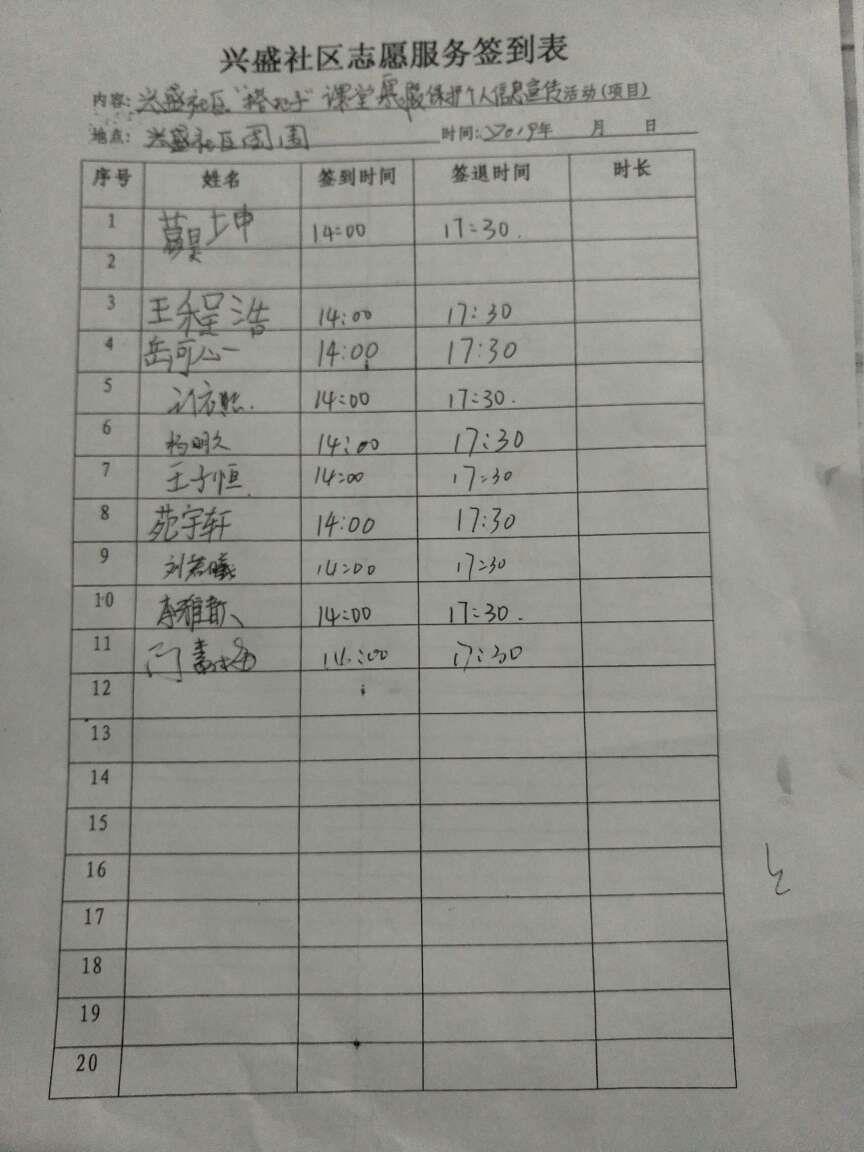 兴盛社区志愿服务签到表
内容:兴盛社区 课堂寒假保护个人信息宣传活动(项目)
地点:兴盛社区周围 时间:2019年 月 日
序号 姓名 签到时间 签退时间 时长
1 14:00 17:30.
2
3 王程浩 14:00 17:30
4 岳可心 14:00 17:30
5 14:00 17:30.
6 杨明久 14:00 17:30
7 王子恒 14:00 17:30
8 苑宇轩 14:00 17:30
9 刘若曦 14:00 17:30
10 李雅歆 14:00 17:30.
11 14:00 17:30
12
13
14
15
16
17
18
19
20